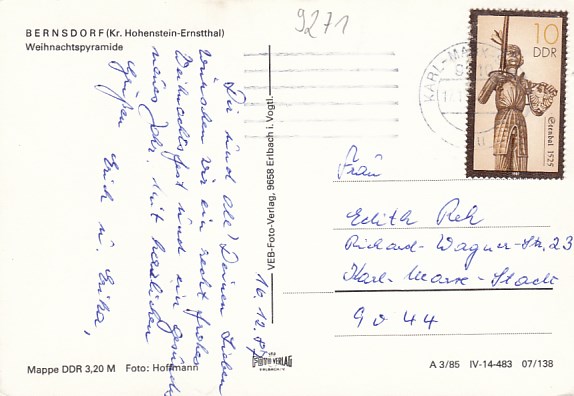 BERNSDORF (Kr. Hohenstein-Ernstthal)
Weihnachtspyramide
9271
10
DDR
Sternbal 1525
KARL-MARX-
Dir und all' Deinen Lieben
wünschen wir ein recht frohes
Weihnachtsfest und ein gesundes
neues Jahr. mit herzlichen
Grüßen Erich u. Erika,
16.12.87
VEB-Foto-Verlag, 9658 Erlbach i. Vogtl.
Frau
Edith Reh
Richard-Wagner-Str. 23
Karl-Marx-Stadt
9044
VEB
FOTO VERLAG
ERLBACH/V.
Mappe DDR 3,20 M Foto: Hoffmann
A 3/85 IV-14-483 07/138